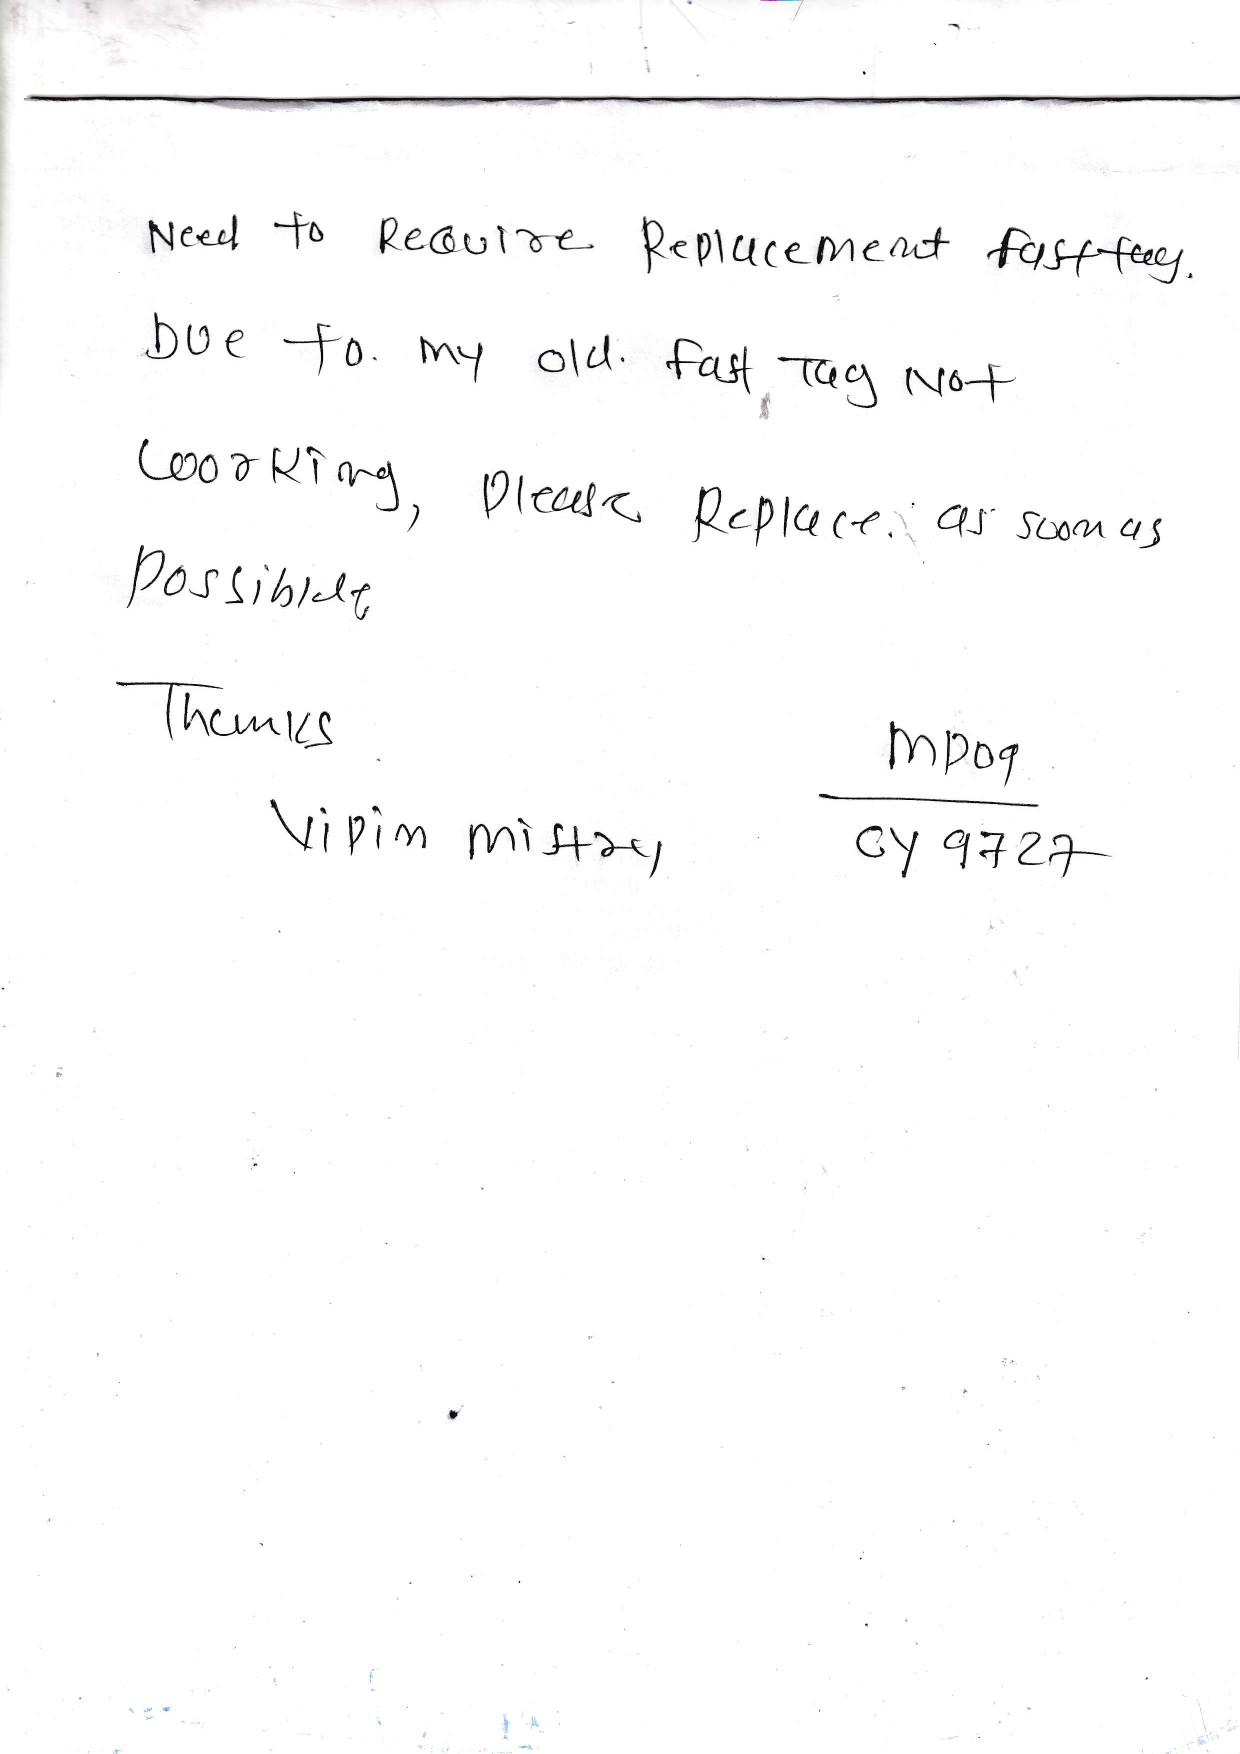 Need to Require Replacement fasttag.
Due to. my old. fast Tag Not
woorking, please Replace. as soon as
possiblle
Thanks
Vipin mistry
MP09
CY 9727